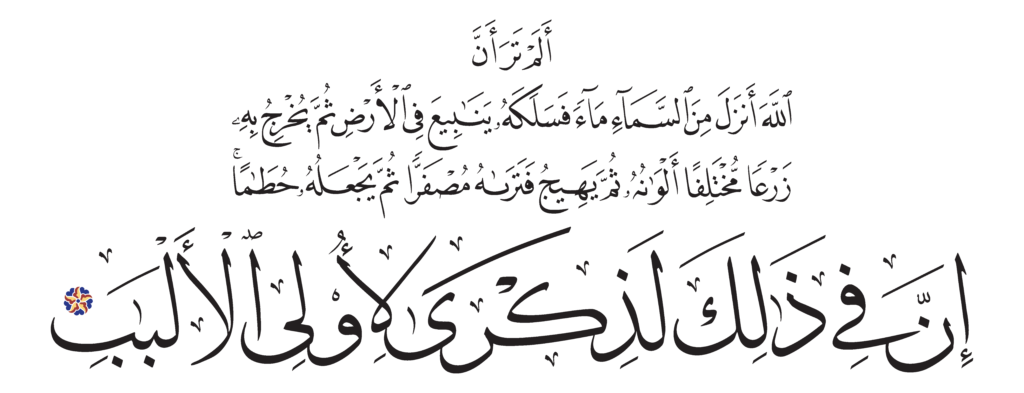 أَلَمْ تَرَ أَنَّ
ٱللَّهَ أَنزَلَ مِنَ ٱلسَّمَآءِ مَآءً فَسَلَكَهُۥ يَنَٰبِيعَ فِى ٱلْأَرْضِ ثُمَّ يُخْرِجُ بِهِۦ
زَرْعًا مُّخْتَلِفًا أَلْوَٰنُهُۥ ثُمَّ يَهِيجُ فَتَرَىٰهُ مُصْفَرًّا ثُمَّ يَجْعَلُهُۥ حُطَٰمًا ۚ
إِنَّ فِى ذَٰلِكَ لَذِكْرَىٰ لِأُو۟لِى ٱلْأَلْبَٰبِ